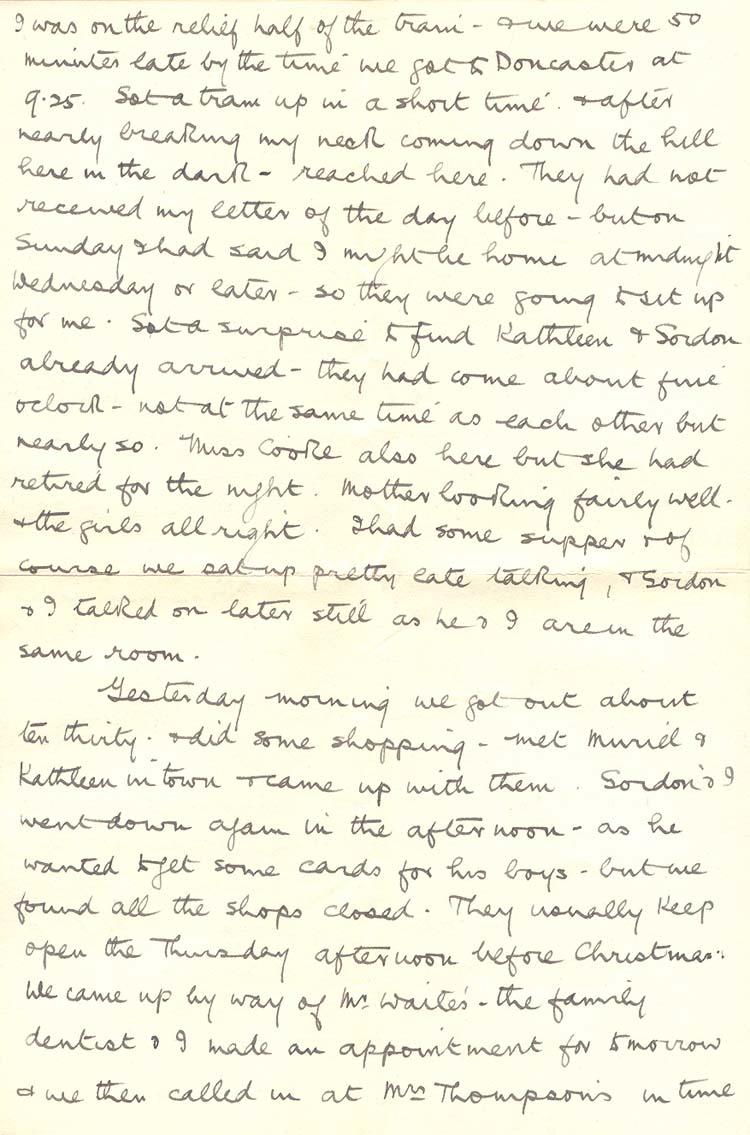 I was on the relief half of the train - & we were 50
minutes late by the time we got to Doncaster at
9.25. Got a tram up in a short time. & after
nearly breaking my neck coming down the hill
here in the dark - reached here. They had not
received my letter of the day before - but on
Sunday I had said I might be home at midnight
Wednesday or later - so they were going to sit up
for me. Got a surprise to find Kathleen & Gordon
already arrived - they had come about five
oclock - not at the same time as each other but
nearly so. Miss Cooke also here but she had
retired for the night. Mother looking fairly well.
& the girls all right. I had some supper & of
course we sat up pretty late talking, & Gordon
& I talked on later still as he & I are in the
same room.
Yesterday morning we got out about
ten thirty. & did some shopping - met Muriel &
Kathleen in town & came up with them. Gordon & I
went down again in the afternoon - as he
wanted to get some cards for his boys - but we
found all the shops closed. They usually keep
open the Thursday afternoon before Christmas.
We came up by way of Mr Waite's - the family
dentist & I made an appointment for tomorrow
& we then called in at Mrs Thompson's in time